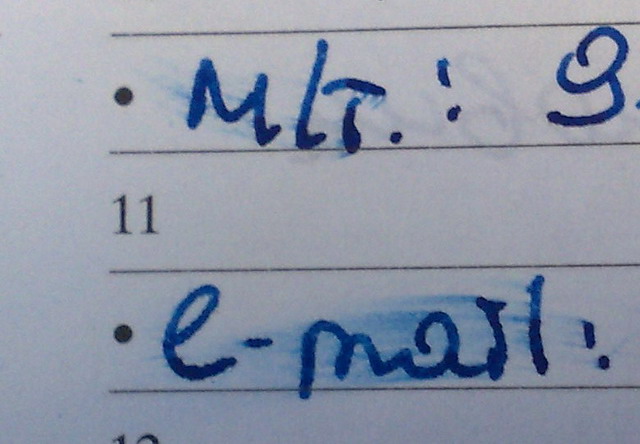 • м/т.: 9
11
• e-mail:
12